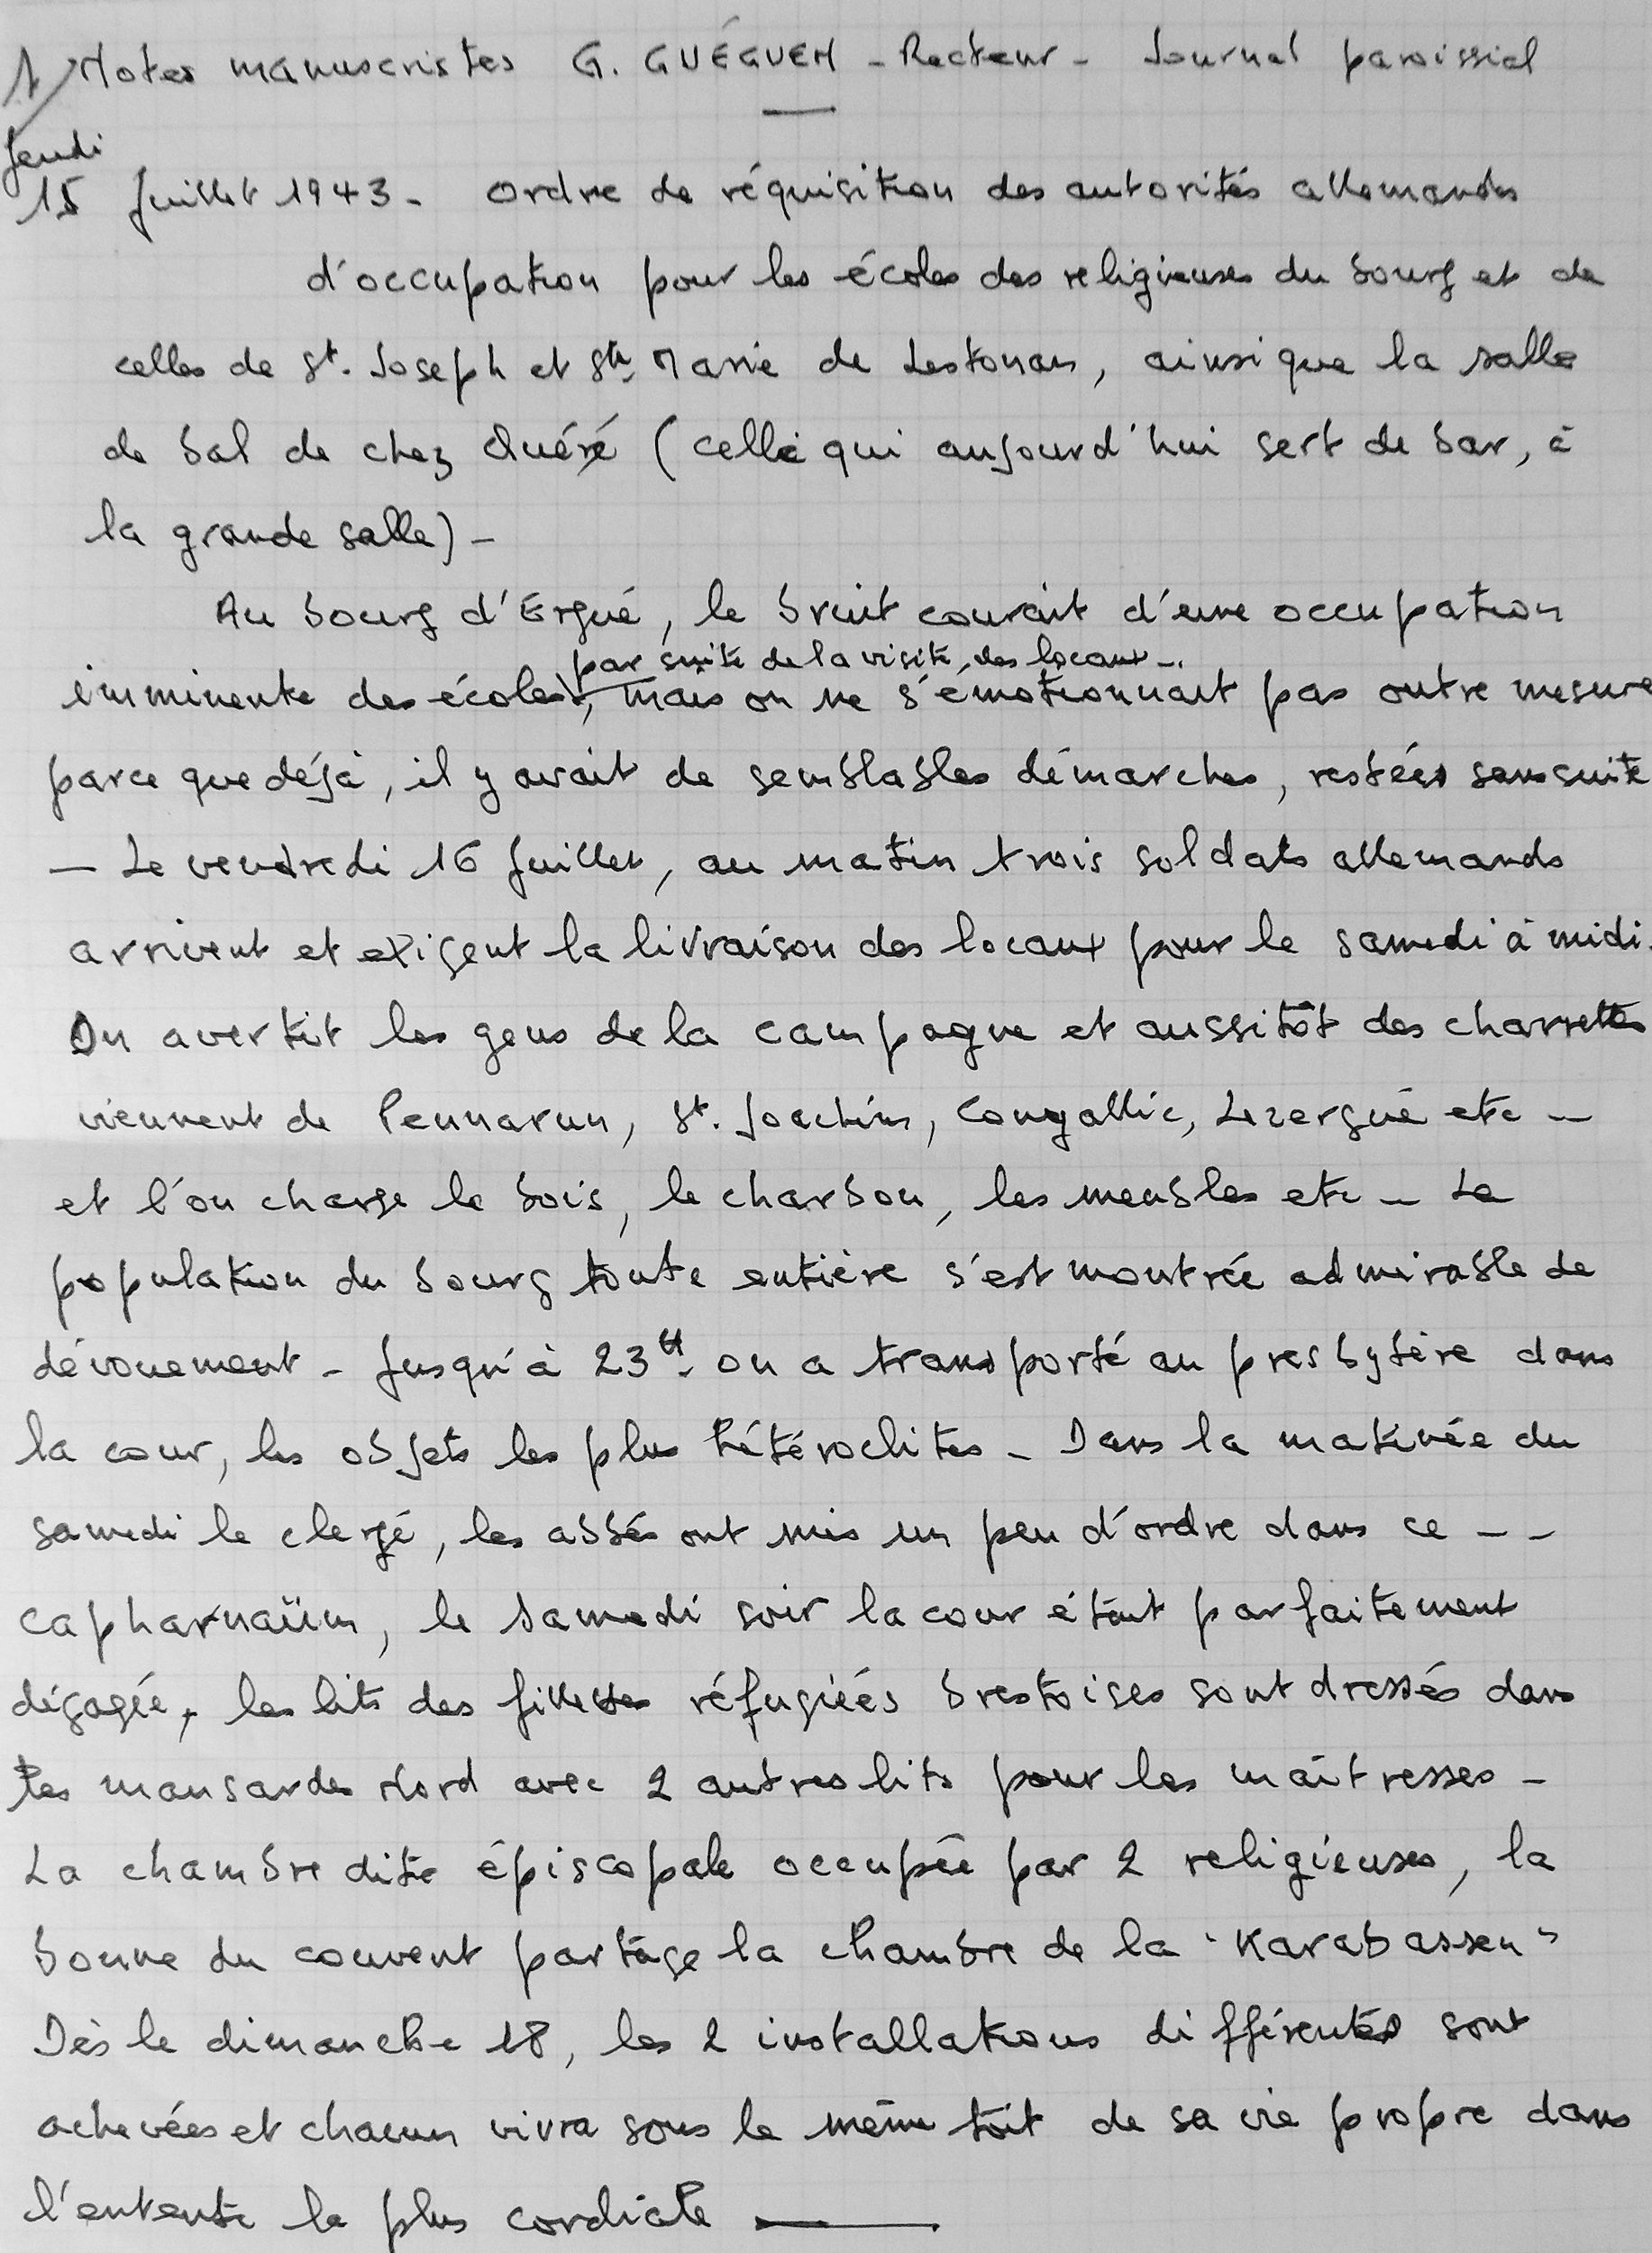 1/ Notes manuscristes G. GUÉGUEN - Recteur - Journal paroissial
Jeudi
15 Juillet 1943 - Ordre de réquisition des autorités allemandes
d'occupation pour les écoles des religieuses du bourg et de
celles de St. Joseph et Ste Marie de Lestonan, ainsi que la salle
de bal de chez Quéré (celle qui aujourd'hui sert de bar, à
la grande salle) -
Au bourg d'Ergué, le bruit courait d'une occupation
par suite de la visite des locaux -
imminente des écoles, mais on ne s'émotionnait pas outre mesure
parce que déjà, il y avait de semblables démarches, restées sans suite
- Le vendredi 16 Juillet, au matin trois soldats allemands
arrivent et exigent la livraison des locaux pour le samedi à midi.
On avertit les gens de la campagne et aussitôt des charrettes
viennent de Pennarun, St. Joachim, Congallic, Lezergué etc -
et l'on charge le bois, le charbon, les meubles etc - La
population du bourg toute entière s'est montrée admirable de
dévouement - Jusqu'à 23H. on a transporté au presbytère dans
la cour, les objets les plus hétéroclites - Dans la matinée du
samedi le clergé, les abbés ont mis un peu d'ordre dans ce - -
capharnaüm, le samedi soir la cour était parfaitement
dégagée, les lits des fillettes réfugiées brestoises sont dressés dans
les mansardes Nord avec 2 autres lits pour les maîtresses -
La chambre dite épiscopale occupée par 2 religieuses, la
bonne du couvent partage la chambre de la "Karabassen"
Dès le dimanche 18, les 2 installations différentes sont
achevées et chacun vivra sous le même toit de sa vie propre dans
l'entente la plus cordiale -